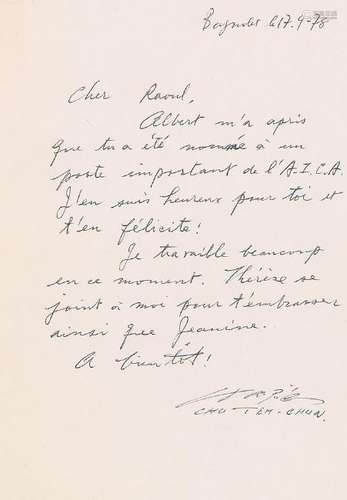 Bagnolet le 17-9-78
Cher Raoul,
Albert m'a apris
que tu a été nommé à un
poste important de l'A.I.C.A.
J'en suis heureux pour toi et
t'en félicite!
Je travaille beaucoup
en ce moment. Thérèse se
joint à moi pour t'embrasser
ainsi que Jeanine.
A bientôt!
CHU TEH-CHUN.